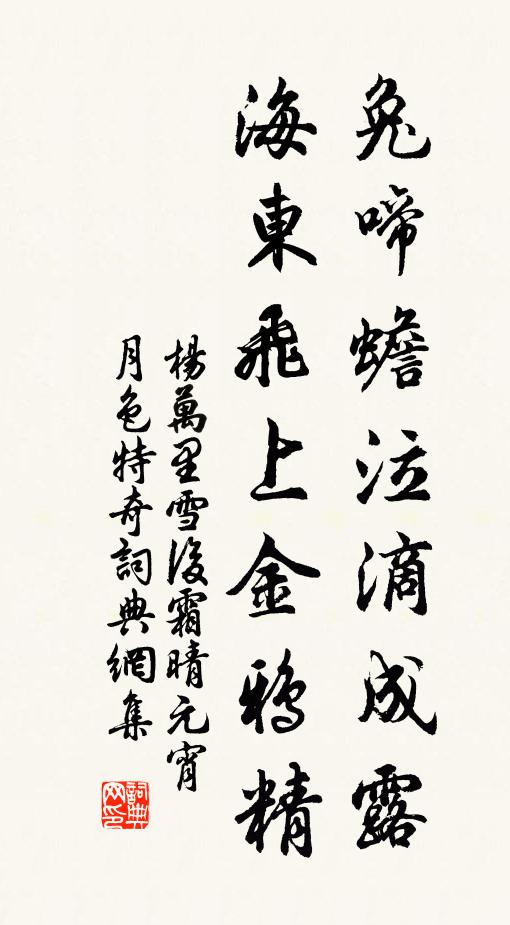 兔啼蟾泣滴成露
海東飛上金鴉精
楊萬里雪後霜晴元宵
月色特奇詞典網集
詞典网印